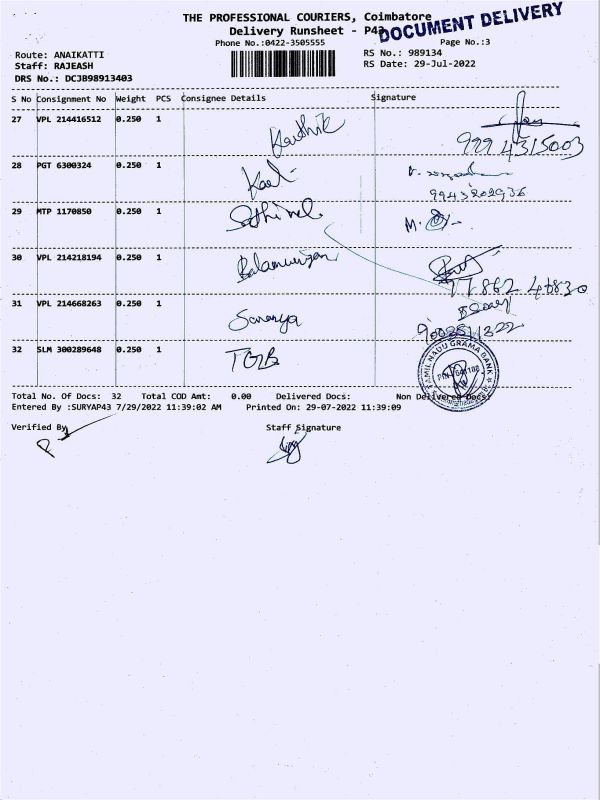 THE PROFESSIONAL COURIERS, Coimbatore
DOCUMENT DELIVERY
Delivery Runsheet - P43
Phone No.:0422-3505555 Page No.:3
Route: ANAIKATTI RS No.: 989134
Staff: RAJEASH RS Date: 29-Jul-2022
DRS No.: DCJB98913403
S No Consignment No Weight PCS Consignee Details Signature
27 VPL 214416512 0.250 1 Karthik
999 4315003
28 PGT 6300324 0.250 1
9943202936
29 MTP 1170850 0.250 1 Sathivel M.
30 VPL 214218194 0.250 1 Balamurugan
31 VPL 214668263 0.250 1 Saranya
32 SLM 300289648 0.250 1 TGB
TAMIL NADU GRAMA BANK
Total No. Of Docs: 32 Total COD Amt: 0.00 Delivered Docs: Non Delivered Docs:
Entered By :SURYAP43 7/29/2022 11:39:02 AM Printed On: 29-07-2022 11:39:09
Verified By Staff Signature